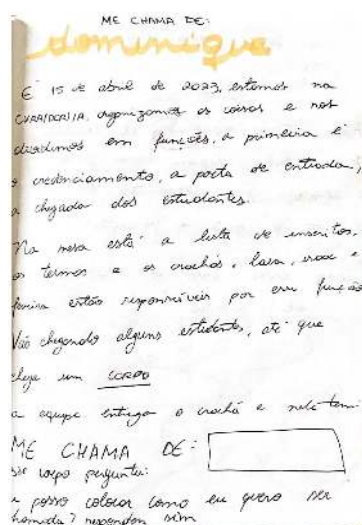 ME CHAMA DE:
dominique
É 15 de abril de 2023, estamos na
CURA/DORIA, organizamos as coisas e nos
dividimos em funções, a primeira é
o credenciamento, a porta de entrada,
a chegada dos estudantes.
Na mesa está a lista de inscritos,
os termos e os crachás, lara, e
estão responsáveis por essa função
Vão chegando alguns estudantes, até que
chega um CORPO
a equipe entrega o crachá e nele tem:
ME CHAMA DE:
esse corpo pergunta:
posso colocar como eu quero ser
chamada? respondem sim